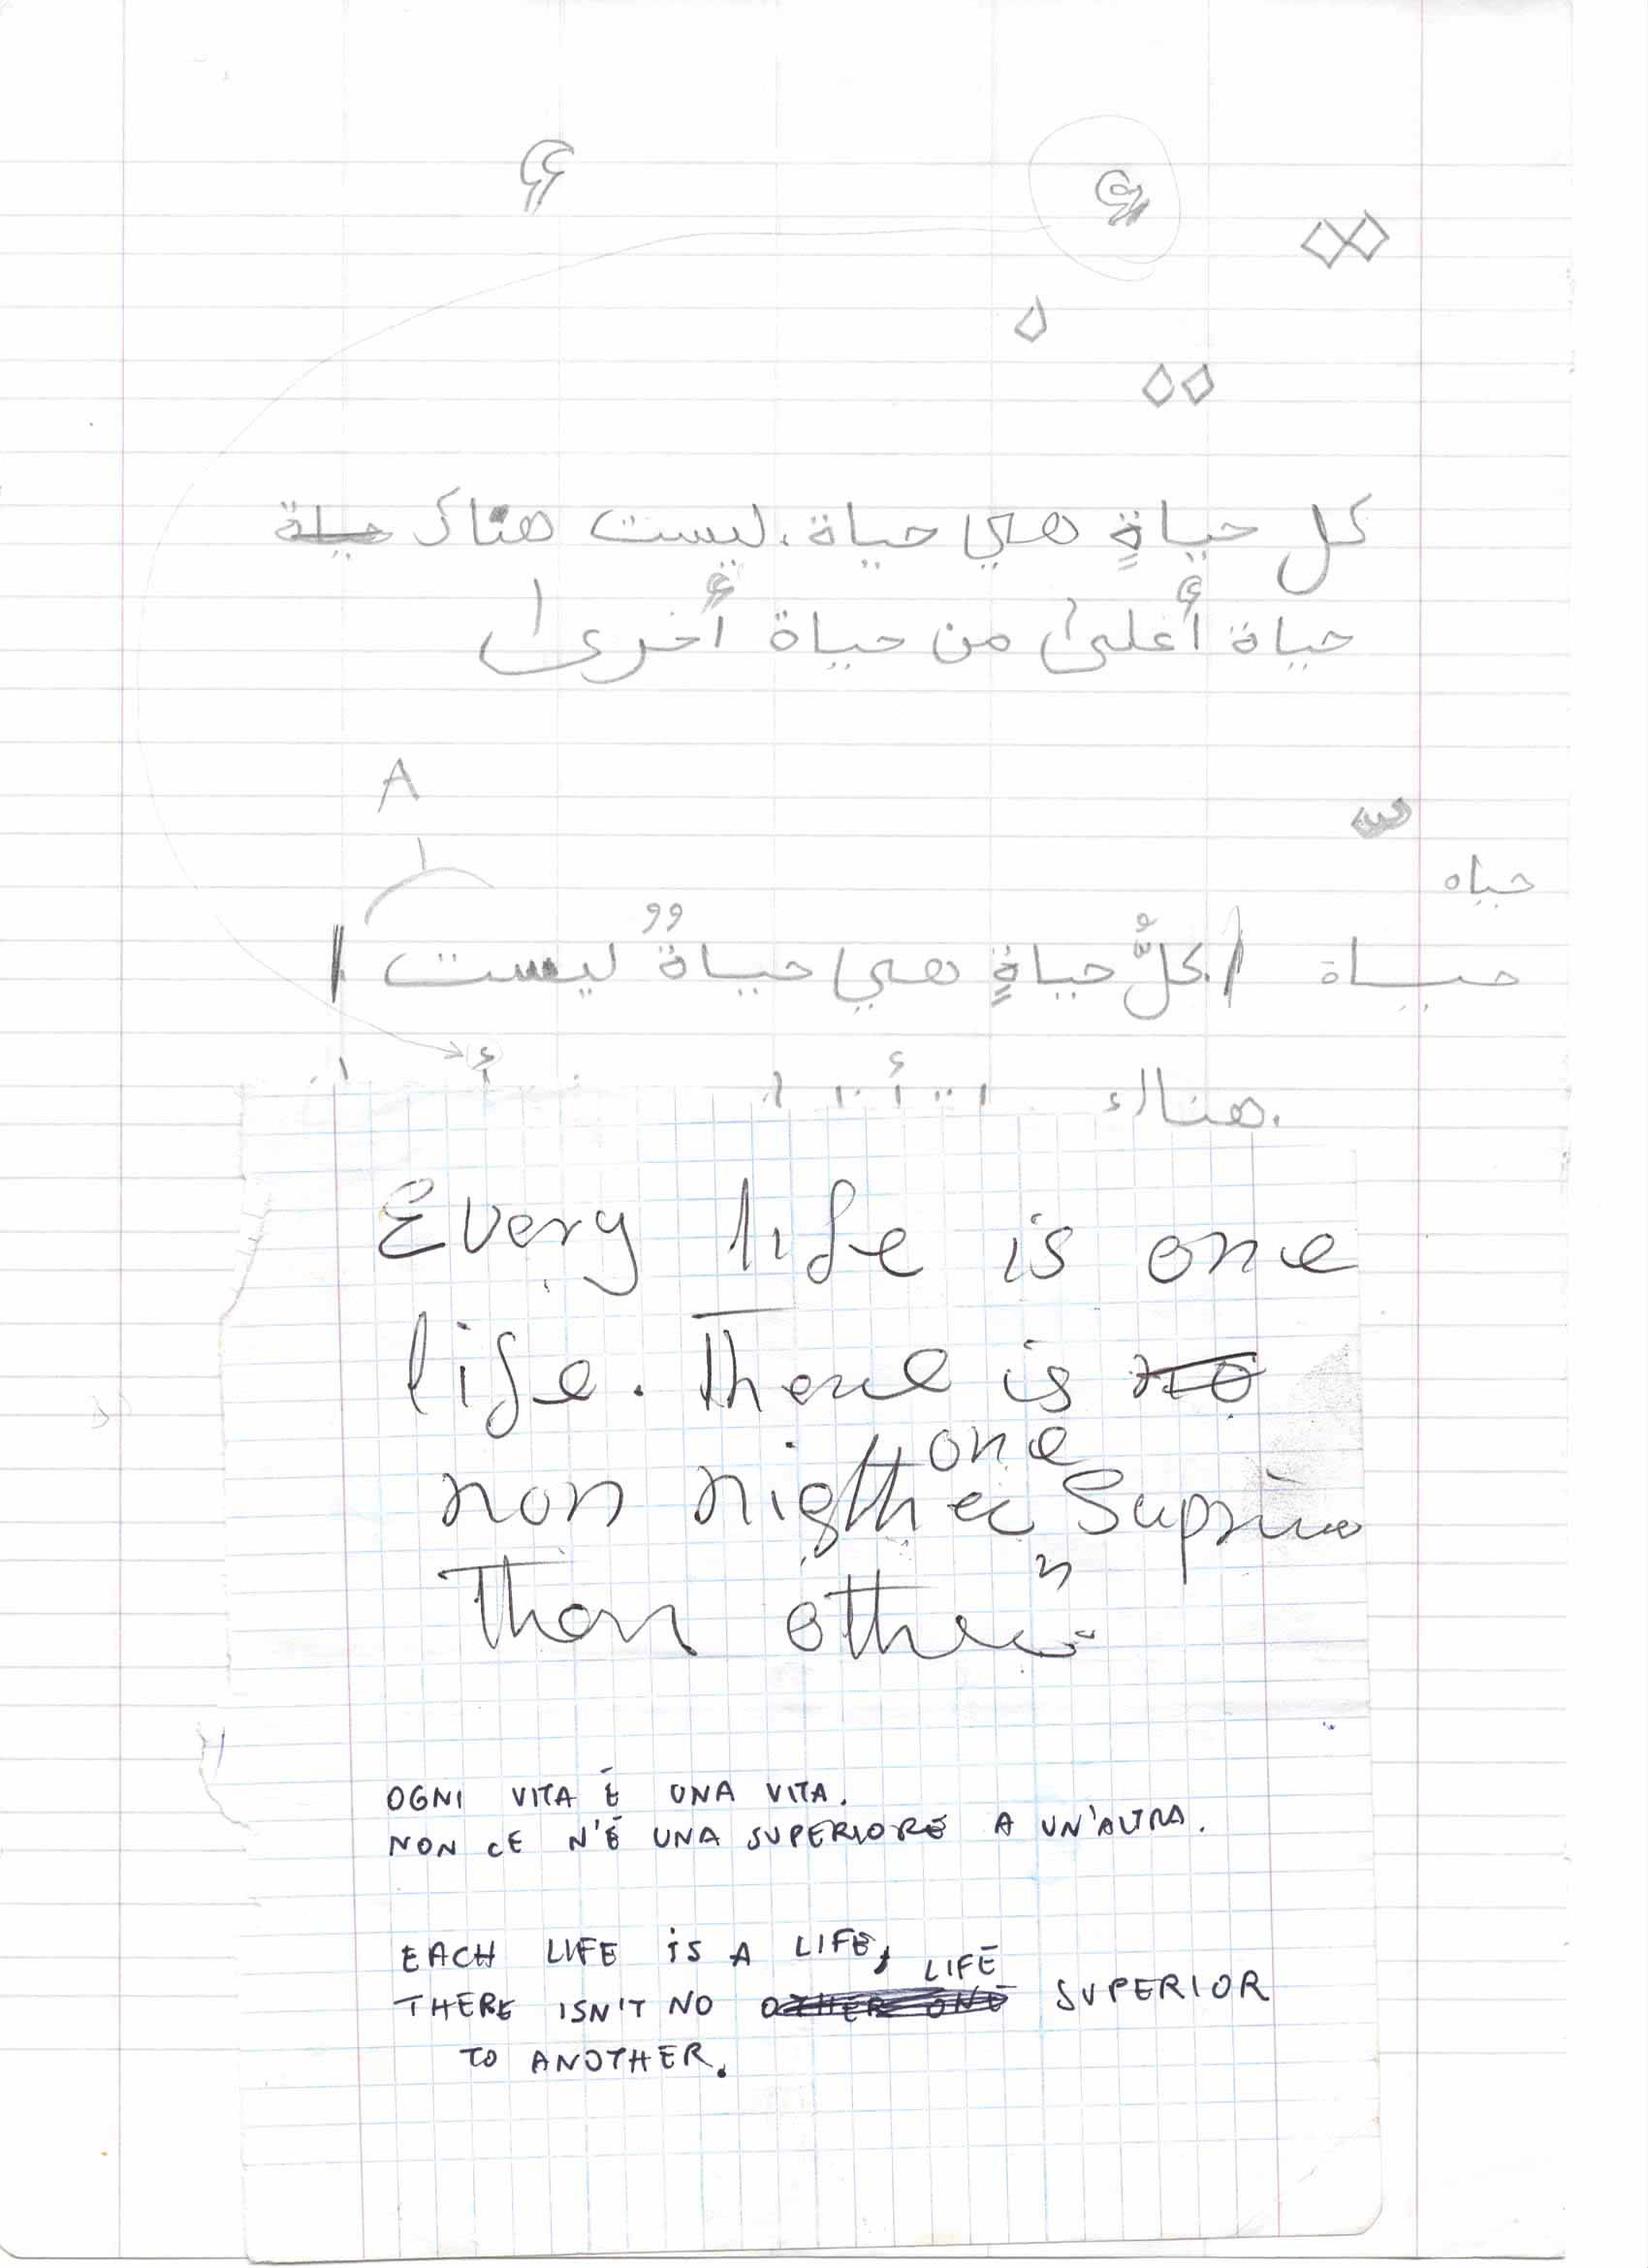 كل حياةٍ هي حياة. ليست هناك
حياة أعلى من حياة أخرى
A
حياه
حياة
كلُّ حياةٍ هي حياةٌ ليست
هناك
Every life is one
life. There is no
one
non
than other
OGNI VITA È UNA VITA.
NON CE N'È UNA SUPERIORE A UN'ALTRA.
EACH LIFE IS A LIFE,
LIFE
THERE ISN'T NO OTHER ONE SUPERIOR
TO ANOTHER.